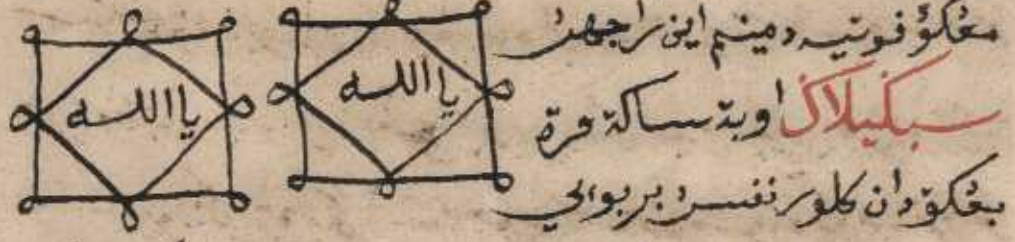 مڠكؤ فوتيه دمينم اين راجهن
سبكيلاك اوبة ساكة فرة
بڠكق دان كلور نفسن بربوايي
ياالله
ياالله